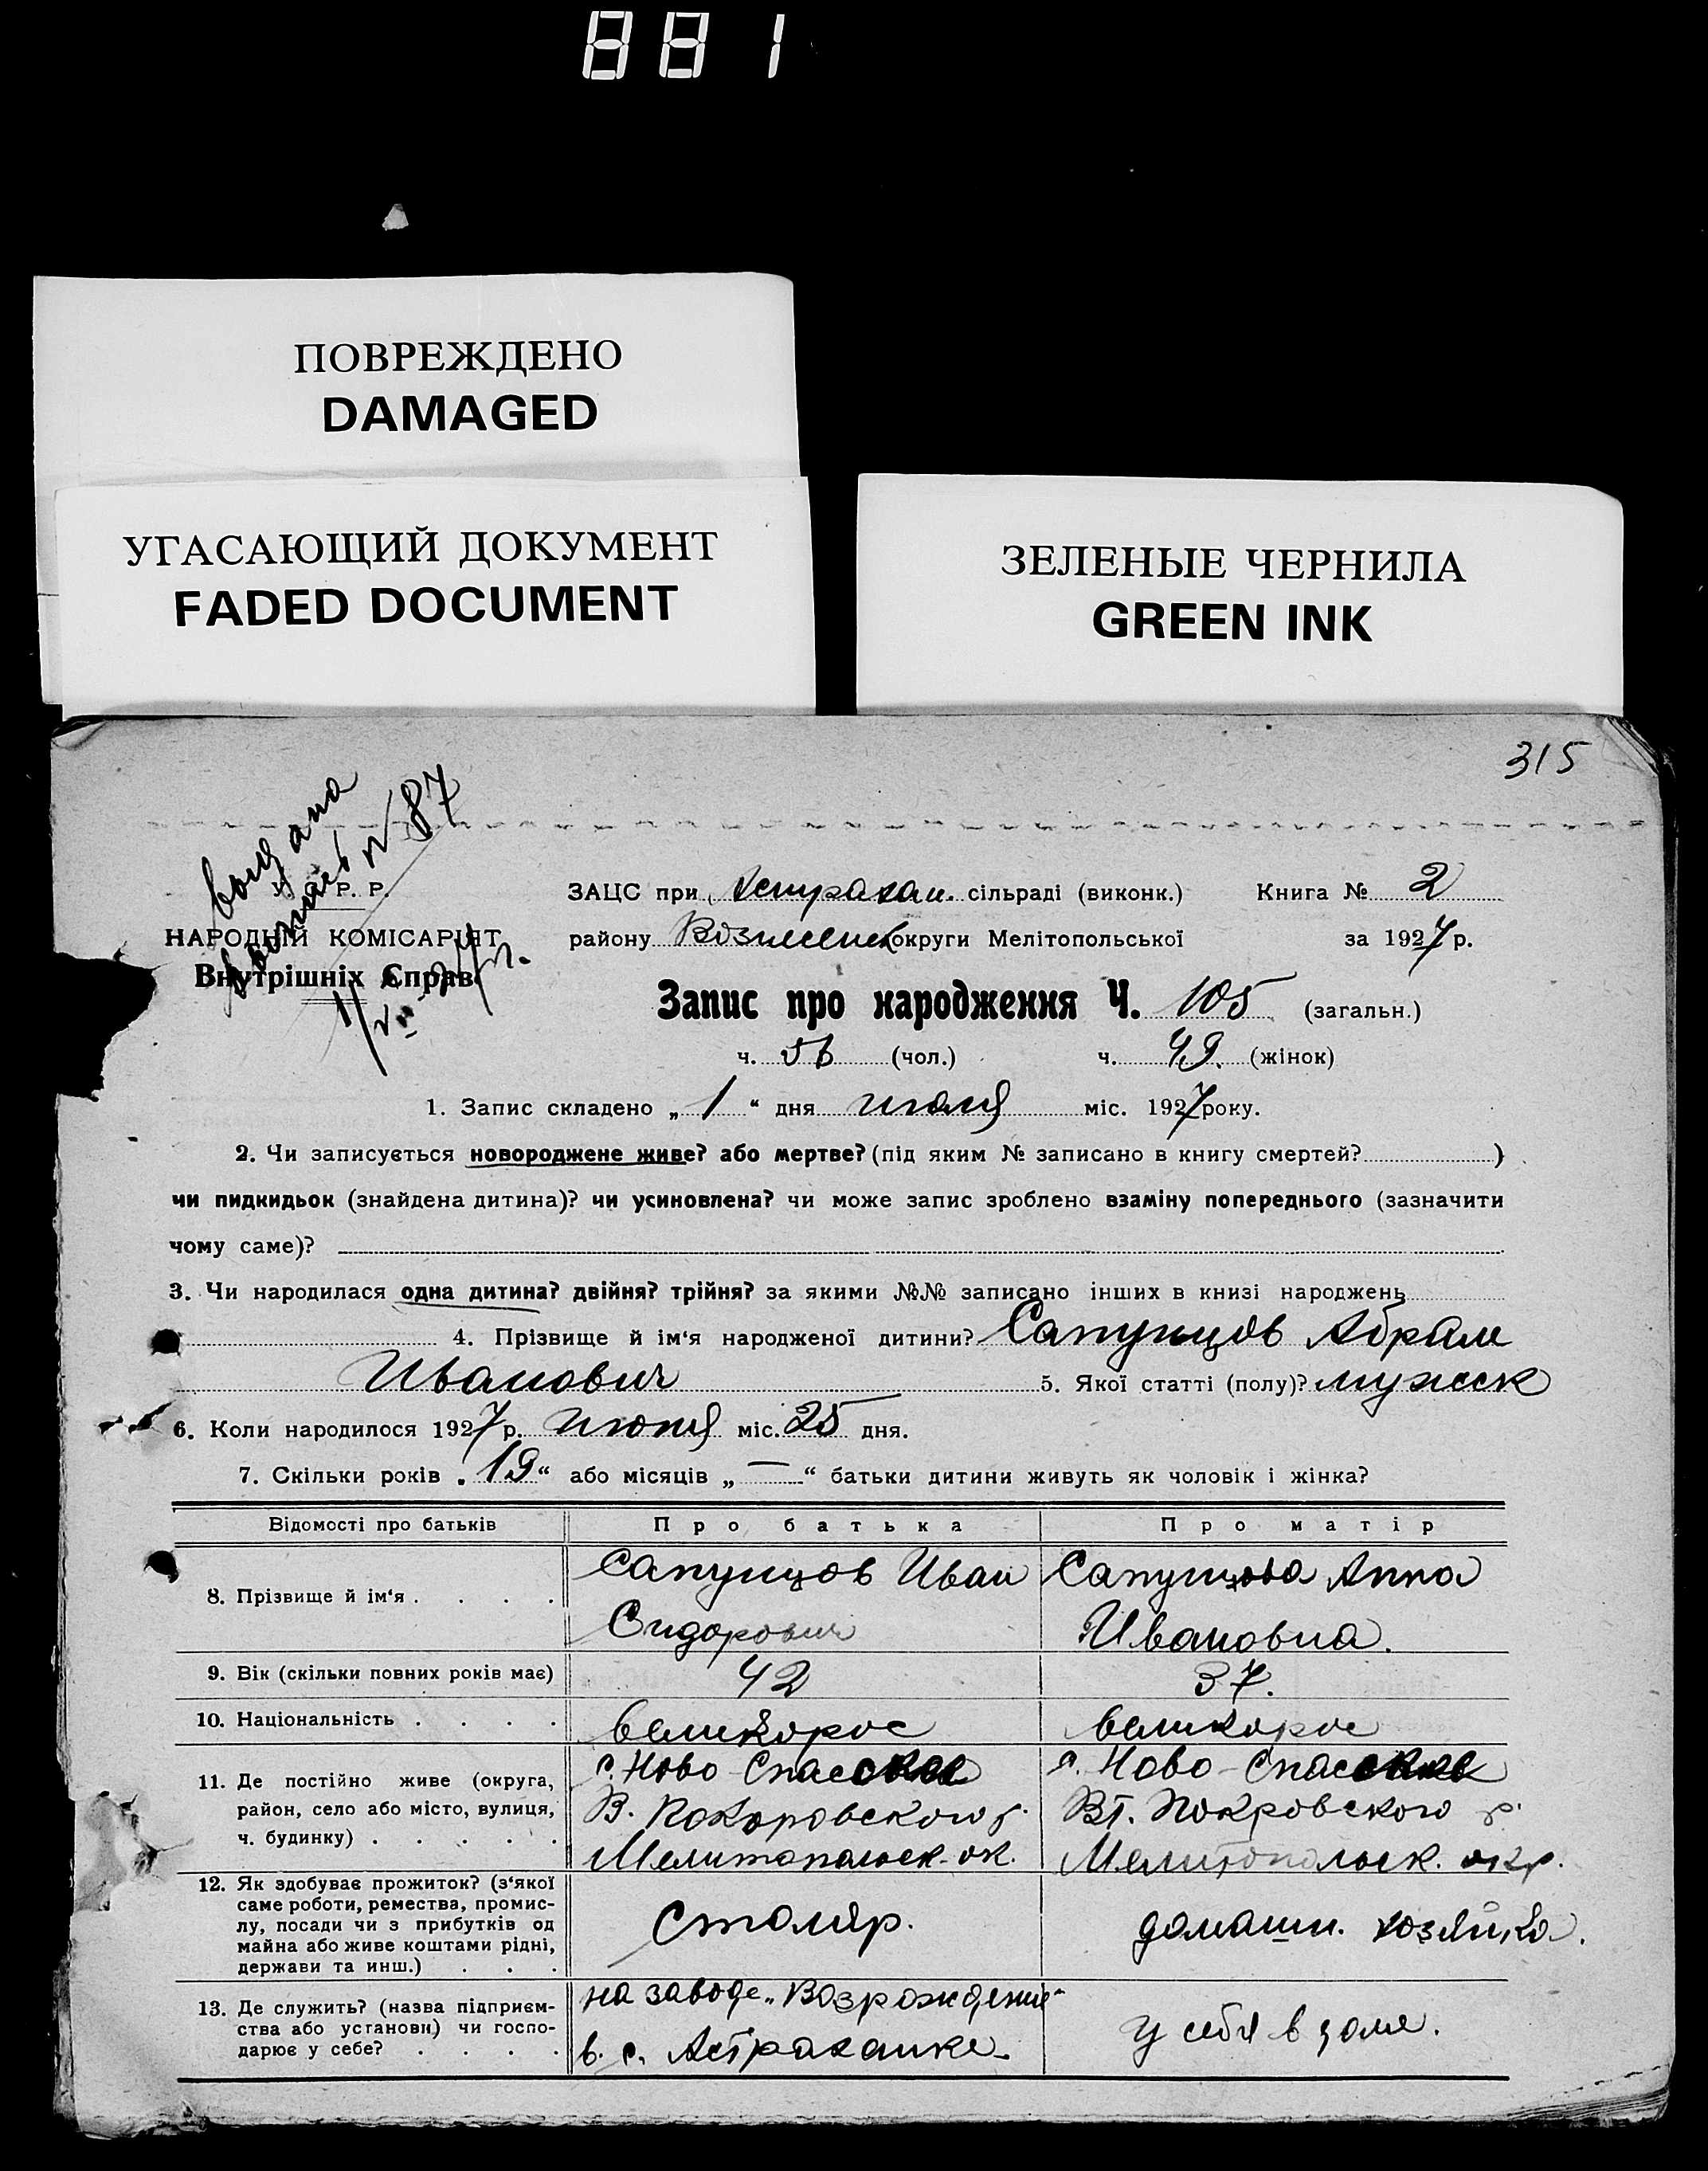 881
ПОВРЕЖДЕНО
DAMAGED
УГАСАЮЩИЙ ДОКУМЕНТ
FADED DOCUMENT
ЗЕЛЕНЫЕ ЧЕРНИЛА
GREEN INK
315
выдана
№ 87
У. С. Р. Р.
НАРОДНІЙ КОМІСАРІЯТ
Внутрішніх Справ
ЗАЦС при Астрахан. сільраді (виконк.) Книга № 2
району Вознесенск округи Мелітопольської за 1927 р.
Запис про народження Ч. 105 (загальн.)
ч. 56 (чол.) ч. 49. (жінок)
1. Запис складено „ 1 “ дня июля міс. 1927 року.
2. Чи записується новороджене живе? або мертве? (під яким № записано в книгу смертей? )
чи пидкидьок (знайдена дитина)? чи усиновлена? чи може запис зроблено взаміну попереднього (зазначити
чому саме)?
3. Чи народилася одна дитина? двійня? трійня? за якими №№ записано інших в книзі народжень
4. Прізвище й ім‘я народженої дитини? Сапунцов Абрам
Иванович 5. Якої статті (полу)? мужск
6. Коли народилося 1927 р. июня міс. 25 дня.
7. Скільки років „ 19 “ або місяців „ — “ батьки дитини живуть як чоловік і жінка?
Відомості про батьків Про батька Про матір
8. Прізвище й ім‘я . . . . Сапунцов Иван Сапунцова Анна
Сидорович Ивановна.
9. Вік (скільки повних років має) 42 37.
10. Національність . . . . великорос великорос
11. Де постійно живе (округа,
район, село або місто, вулиця,
ч. будинку) . . . . .
с. Ново-Спасское
В. Покоровского р.
Мелитопольск. ок.
с. Ново-Спасское
Вт. Покровского р.
Мелитопольск. окр.
12. Як здобуває прожиток? (з‘якої
саме роботи, ремества, промис-
лу, посади чи з прибутків од
майна або живе коштами рідні,
держави та инш.) . . .
столяр.
домашн. хозяйка.
13. Де служить? (назва підприєм-
ства або установи) чи госпо-
дарює у себе? . . . .
на заводе „Возрождение“
в. с. Астраханке.
у себя в доме.